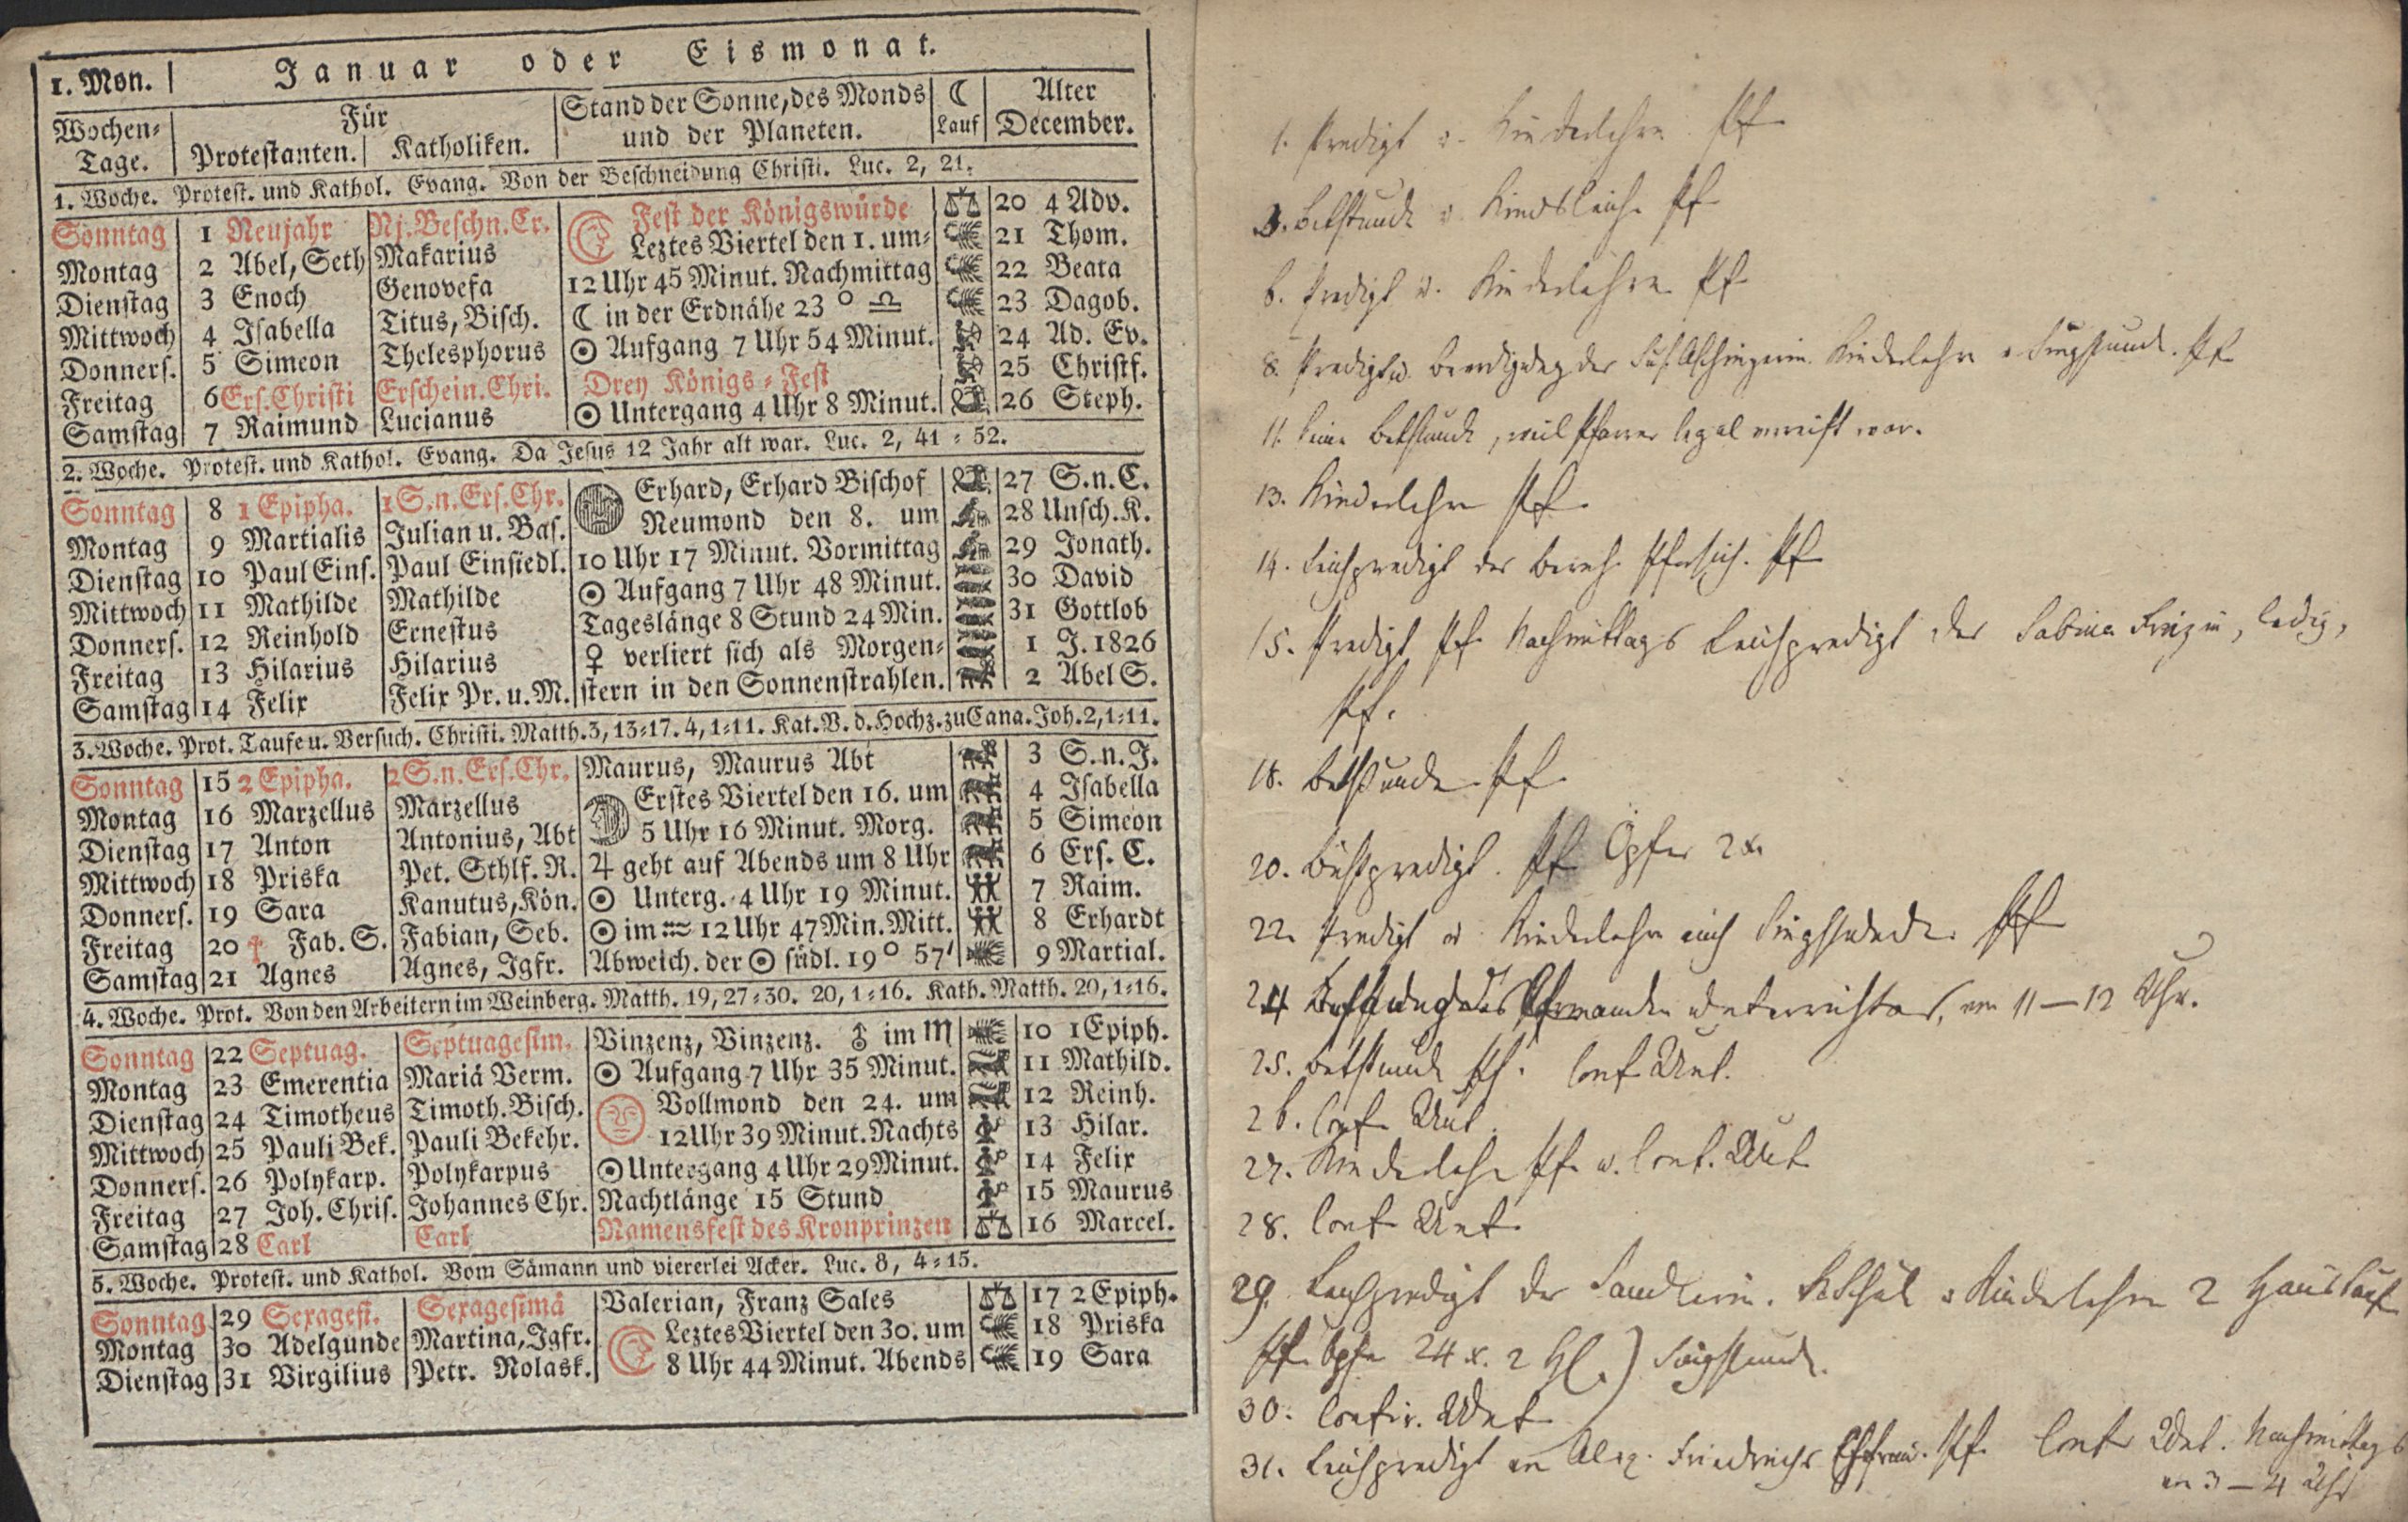 1. Mon. Januar oder Eismonat.
Wochen-Tage. Für Protestanten. Katholiken. Stand der Sonne, des Monds und der Planeten. ☾ Lauf Alter December.
1. Woche. Protest. und Kathol. Evang. Von der Beschneidung Christi. Luc. 2, 21.
Sonntag 1 Neujahr Nj. Beschn. Cr. Fest der Königswürde 20 4 Adv.
Montag 2 Abel, Seth Makarius Leztes Viertel den 1. um- 21 Thom.
Dienstag 3 Enoch Genovefa 12 Uhr 45 Minut. Nachmittag 22 Beata
Mittwoch 4 Isabella Titus, Bisch. ☾ in der Erdnähe 23° ♎ 23 Dagob.
Donners. 5 Simeon Thelesphorus ☉ Aufgang 7 Uhr 54 Minut. 24 Ad. Ev.
Freitag 6 Ers. Christi Erschein. Chri. Drey Königs-Fest 25 Christf.
Samstag 7 Raimund Lucianus ☉ Untergang 4 Uhr 8 Minut. 26 Steph.
2. Woche. Protest. und Kathol. Evang. Da Jesus 12 Jahr alt war. Luc. 2, 41-52.
Sonntag 8 1 Epipha. 1 S. n. Ers. Chr. Erhard, Erhard Bischof 27 S. n. C.
Montag 9 Martialis Julian u. Bas. Neumond den 8. um 28 Unsch. K.
Dienstag 10 Paul Eins. Paul Einsiedl. 10 Uhr 17 Minut. Vormittag 29 Jonath.
Mittwoch 11 Mathilde Mathilde ☉ Aufgang 7 Uhr 48 Minut. 30 David
Donners. 12 Reinhold Ernestus Tageslänge 8 Stund 24 Min. 31 Gottlob
Freitag 13 Hilarius Hilarius ♀ verliert sich als Morgen- 1 J. 1826
Samstag 14 Felix Felix Pr. u. M. stern in den Sonnenstrahlen. 2 Abel S.
3. Woche. Prot. Taufe u. Versuch. Christi. Matth. 3, 13-17. 4, 1-11. Kat. V. d. Hochz. zu Cana. Joh. 2, 1-11.
Sonntag 15 2 Epipha. 2 S. n. Ers. Chr. Maurus, Maurus Abt 3 S. n. J.
Montag 16 Marzellus Marzellus Erstes Viertel den 16. um 4 Isabella
Dienstag 17 Anton Antonius, Abt 5 Uhr 16 Minut. Morg. 5 Simeon
Mittwoch 18 Priska Pet. Sthlf. R. ♃ geht auf Abends um 8 Uhr 6 Ers. C.
Donners. 19 Sara Kanutus, Kön. ☉ Unterg. 4 Uhr 19 Minut. 7 Raim.
Freitag 20 Fab. S. Fabian, Seb. ☉ im ♒ 12 Uhr 47 Min. Mitt. 8 Erhardt
Samstag 21 Agnes Agnes, Igfr. Abweich. der ☉ südl. 19° 57′ 9 Martial.
4. Woche. Prot. Von den Arbeitern im Weinberg. Matth. 19, 27-30. 20, 1-16. Kath. Matth. 20, 1-16.
Sonntag 22 Septuag. Septuagesim. Vinzenz, Vinzenz. ♂ im ♏ 10 1 Epiph.
Montag 23 Emerentia Mariä Verm. ☉ Aufgang 7 Uhr 35 Minut. 11 Mathild.
Dienstag 24 Timotheus Timoth. Bisch. Vollmond den 24. um 12 Reinh.
Mittwoch 25 Pauli Bek. Pauli Bekehr. 12 Uhr 39 Minut. Nachts 13 Hilar.
Donners. 26 Polykarp. Polykarpus ☉ Untergang 4 Uhr 29 Minut. 14 Felix
Freitag 27 Joh. Chris. Johannes Chr. Nachtlänge 15 Stund 15 Maurus
Samstag 28 Carl Carl Namensfest des Kronprinzen 16 Marcel.
5. Woche. Protest. und Kathol. Vom Sämann und viererlei Acker. Luc. 8, 4-15.
Sonntag 29 Sexagesi. Sexagesimä Valerian, Franz Sales 17 2 Epiph.
Montag 30 Adelgunde Martina, Igfr. Leztes Viertel den 30. um 18 Priska
Dienstag 31 Virgilius Petr. Nolask. 8 Uhr 44 Minut. Abends 19 Sara
1. Predigt u. Kinderlehre Pf
Betstunde u. Kindsleiche Pf
6. Predigt u. Kinderlehre Pf
8. Predigt u. Beerdigung der Kinderlehre u. Singstunde. Pf
11. Keine Betstunde, weil Pfarrer legal verreist war.
13. Kinderlehre Pf
14. Leichpredigt der Pf
15. Predigt Pf Nachmittags Leichpredigt der Sabina ledig,
Pf.
18. Betstunde Pf
20. Bußpredigt. Pf Opfer 2 x.
22. Predigt u. Kinderlehre auch Singstunde. Pf
24 des Unterrichts, von 11–12 Uhr.
25. Betstunde Pf. Conf. Unt.
26. Conf. Unt.
27. Kinderlehre Pf. u. Conf. Unt
28. Conf. Unt.
29. Leichpredigt der u Kinderlehre 2 Haustauf
Pf. Opfer 24 x. 2 Hl.) Singstunde.
30. Confir. Unt
31. Leichpredigt Friedrichs Ehefrau. Pf. Conf. Unt. Nachmittags
von 3–4 Uhr